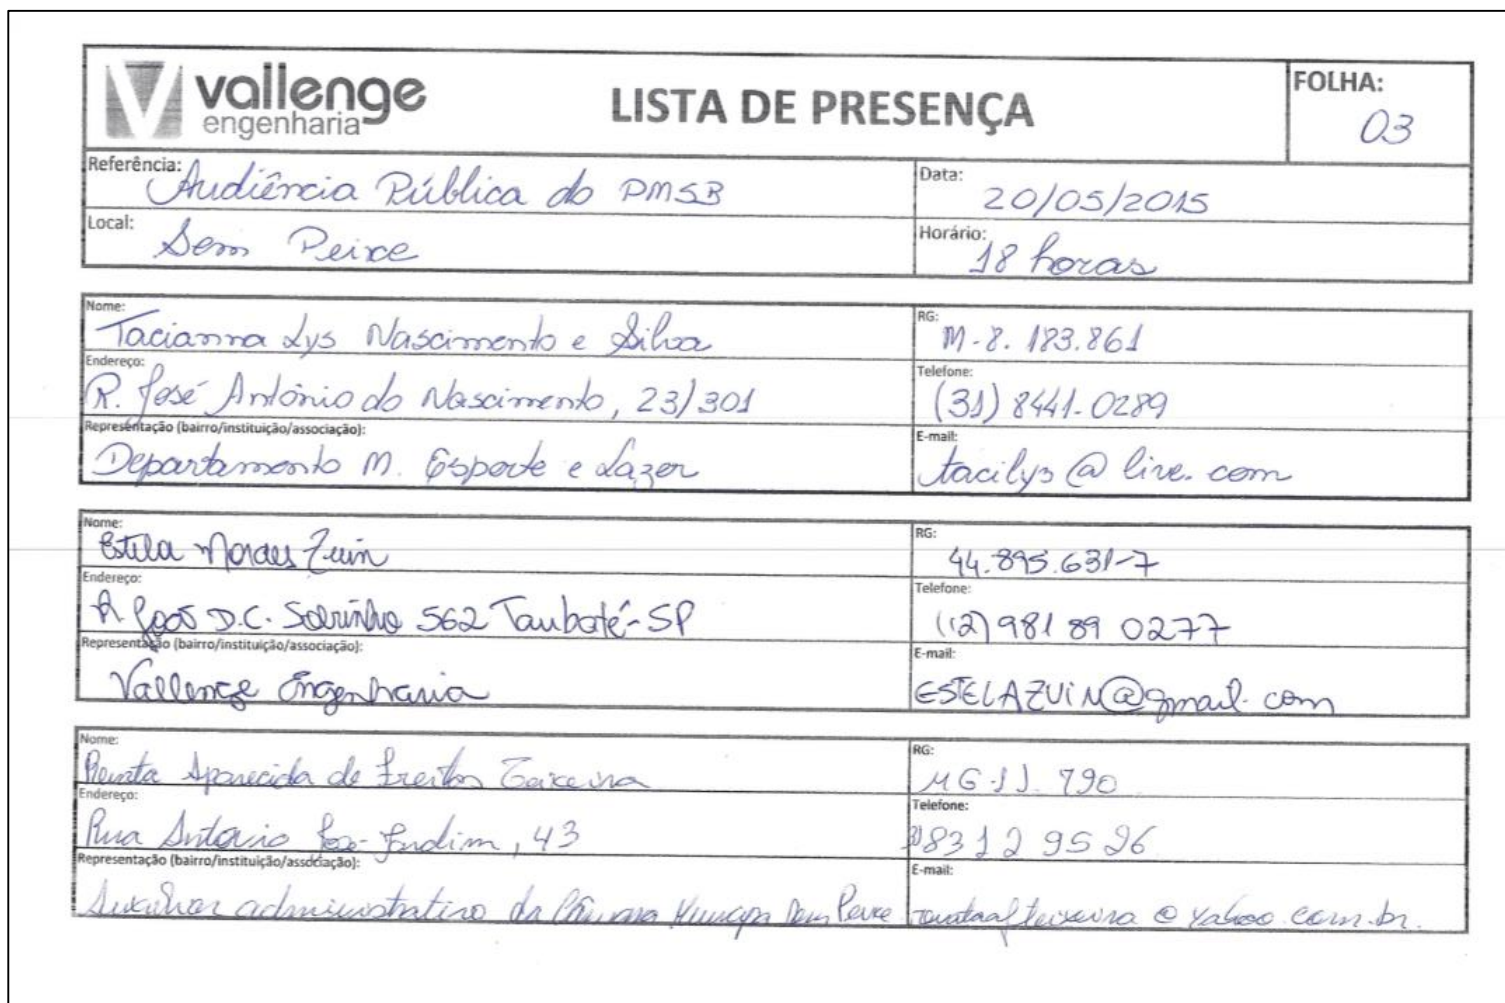 vallenge
engenharia
LISTA DE PRESENÇA
FOLHA:
03
Referência: Audiência Pública do PMSB
Data: 20/05/2015
Local: Sem Peixe
Horário: 18 horas
Nome: Tacianna Lys Nascimento e Silva
RG: M-8.183.861
Endereço: R. José Antônio do Nascimento, 23/301
Telefone: (31) 8441-0289
Representação (bairro/instituição/associação): Departamento M. Esporte e Lazer
E-mail: tacilys@live.com
Nome: Estela Moraes Zuin
RG: 44.895.631-7
Endereço: R João D.C. Sobrinho 562 Taubaté-SP
Telefone: (12) 981 89 0277
Representação (bairro/instituição/associação): Vallenge Engenharia
E-mail: ESTELAZUIN@gmail.com
Nome: Renata Aparecida de Freitas Teixeira
RG: MG-11.790
Endereço: Rua Antonio José Jardim, 43
Telefone: 8312 9526
Representação (bairro/instituição/associação): Auxiliar administrativo da Câmara Sem Peixe
E-mail: renataafteixeira@yahoo.com.br.